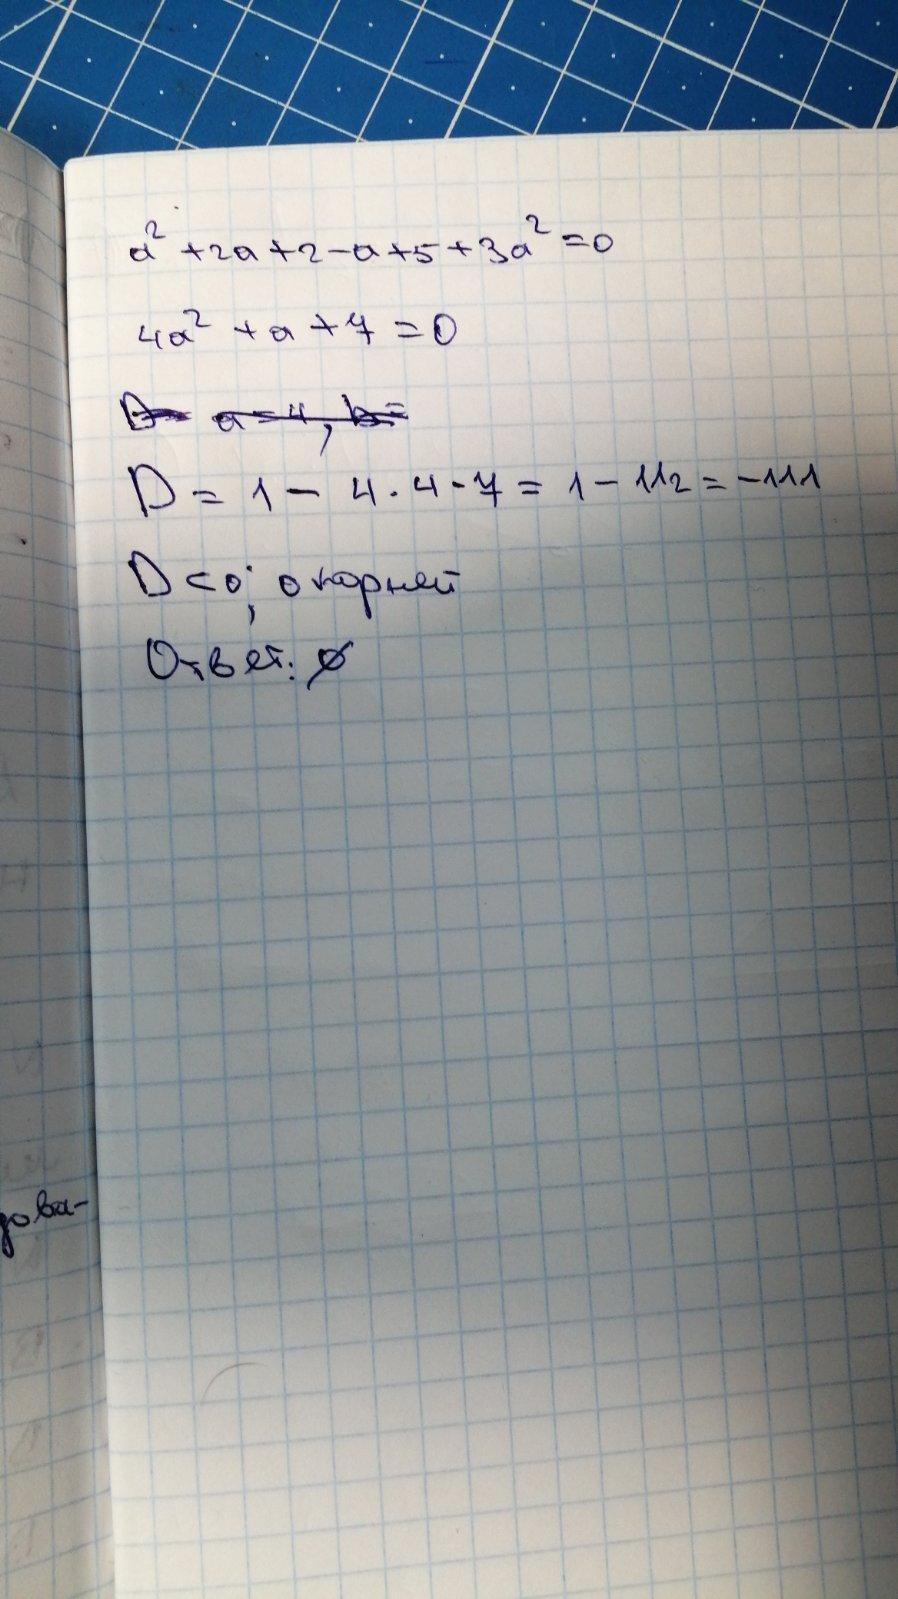 a² + 2a + 2 - a + 5 + 3a² = 0
4a² + a + 7 = 0
D = a = 4, b =
D = 1 - 4 · 4 · 7 = 1 - 112 = -111
D < 0; 0 корней
Ответ: ∅
дова-